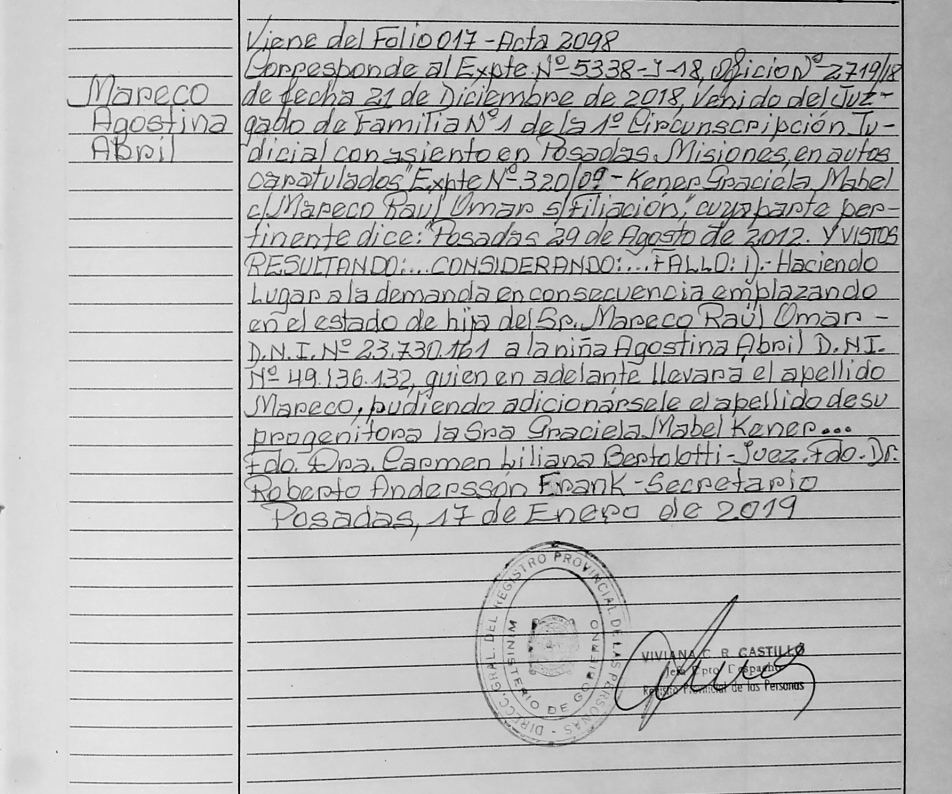 Viene del Folio 017 - Acta 2098
Corresponde al Expte. Nº 5338-J-18, Oficio Nº 2719/18
Mareco
de fecha 21 de Diciembre de 2018, Venido del Juz-
Agostina
gado de Familia Nº1 de la 1º Circunscripción Ju-
Abril
dicial con asiento en Posadas. Misiones, en autos
caratulados "Expte Nº 320/09 - Kener Graciela Mabel
c/ Mareco Raúl Omar s/ Filiación", cuya parte per-
tinente dice: "Posadas 29 de Agosto de 2012. Y VISTOS
RESULTANDO:...CONSIDERANDO:...FALLO: 1).- Haciendo
Lugar a la demanda en consecuencia emplazando
en el estado de hija del Sr. Mareco Raúl Omar -
D.N.I. Nº 23.730.161 a la niña Agostina Abril D.N.I.
Nº 49.136.132, quien en adelante llevará el apellido
Mareco, pudiendo adicionársele el apellido de su
progenitora la Sra Graciela Mabel Kener...
Fdo. Dra. Carmen Liliana Bertolotti - Juez. Fdo. Dr.
Roberto Anderssón Frank - Secretario
Posadas, 17 de Enero de 2019
DIRECC. GRAL. DEL REGISTRO PROVINCIAL DE LAS PERSONAS -
MINISTERIO DE GOBIERNO
VIVIANA C. R. CASTILLO
Jefa Dpto. Despacho
Registro Provincial de las Personas